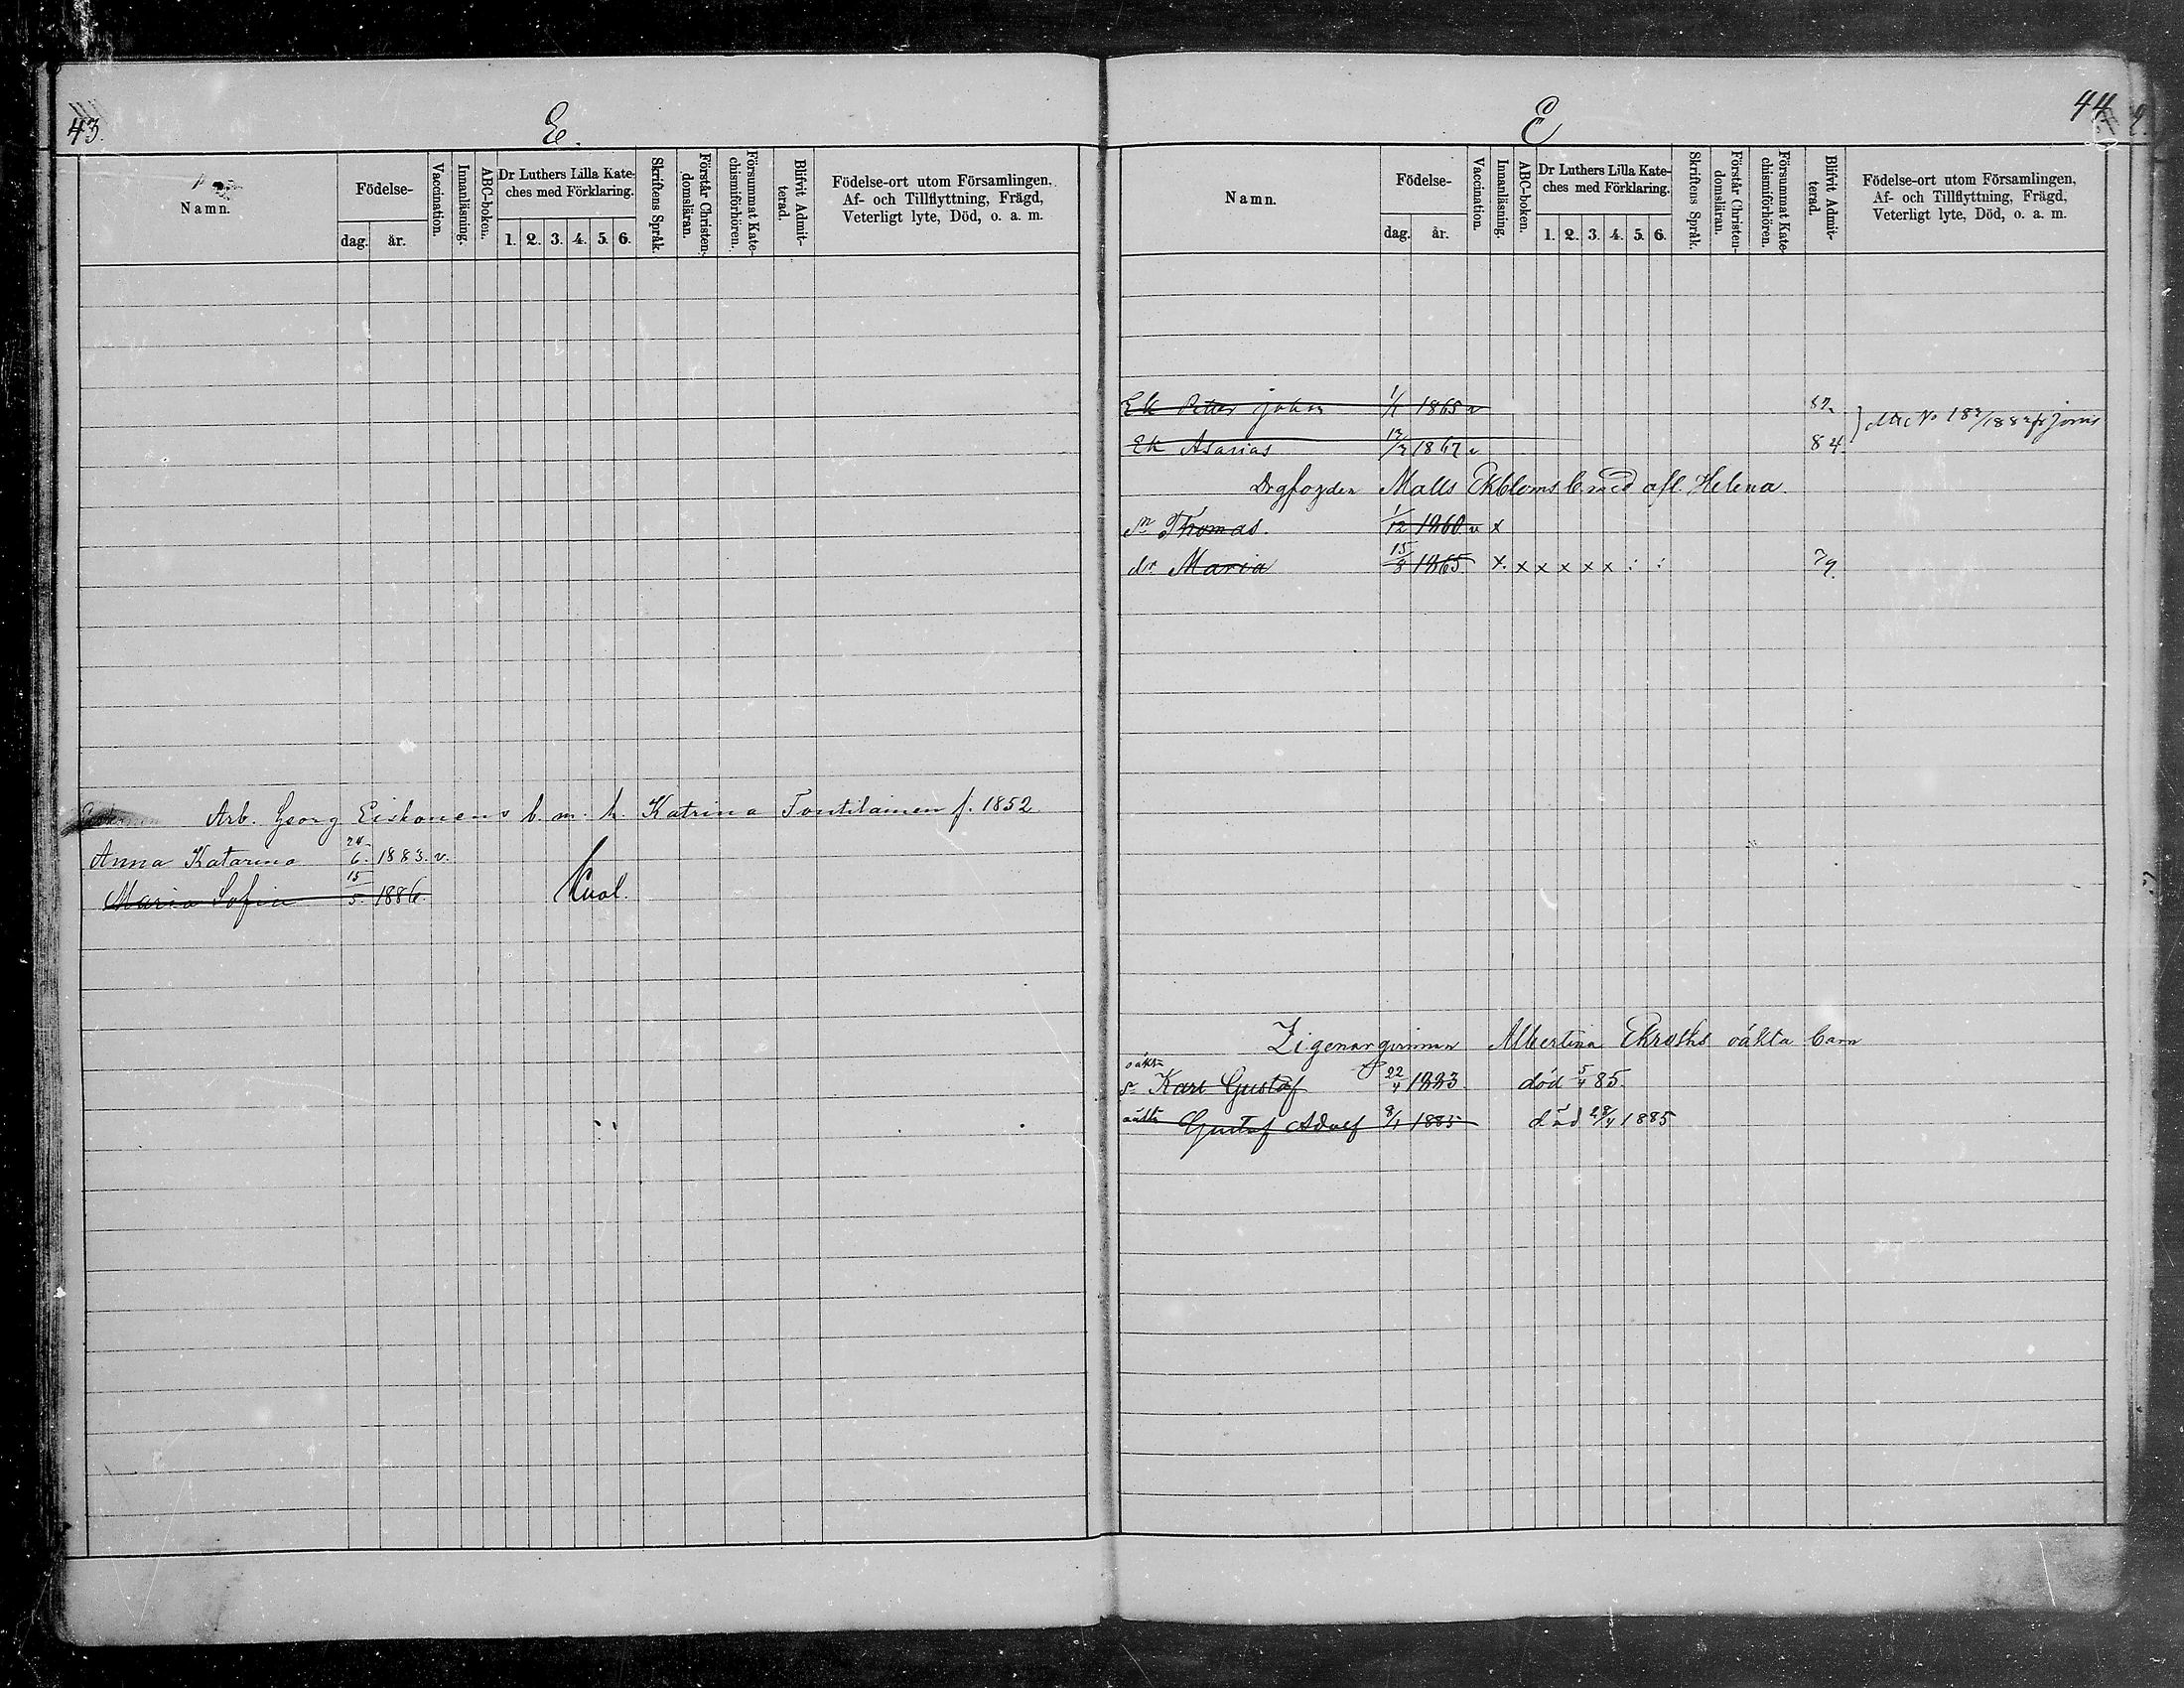 43.
E.
Namn.
Födelse-
dag.
år.
Vaccination.
Innanläsning.
ABC-boken.
Dr Luthers Lilla Kate-
ches med Förklaring.
1. 2. 3. 4. 5. 6.
Skriftens Språk.
Förstår Christen-
domsläran.
Försummat Kate-
chismiförhören.
Blifvit Admit-
terad.
Födelse-ort utom Församlingen,
Af- och Tillflyttning, Frägd,
Veterligt lyte, Död, o. a. m.
Arb. Georg Eiskonens b. m. h. Katrina Tontilainen f. 1852
Anna Katarina 24/6. 1883. v.
Maria Sofia 15/5. 1886. Kuol.
44
E
Namn.
Födelse-
dag.
år.
Vaccination.
Innanläsning.
ABC-boken.
Dr Luthers Lilla Kate-
ches med Förklaring.
1. 2. 3. 4. 5. 6.
Skriftens Språk.
Förstår Christen-
domsläran.
Försummat Kate-
chismiförhören.
Blifvit Admit-
terad.
Födelse-ort utom Församlingen,
Af- och Tillflyttning, Frägd,
Veterligt lyte, Död, o. a. m.
Ek Petter Johan 1/1 1865 v
Ek Asarias 1867 v 84
Malls Ekbloms b med afl. Helena.
sn Thomas. 1/12 1860 v x
dr Maria 15/8 1865. x. x x x x x : : 79.
Albertina Ekroths oäkta barn
oäkta
sn Karl Gustaf 22/4 1883 död 5/4 85.
oäkta Gustaf Adolf 8/1 1885 död 28/4 1885